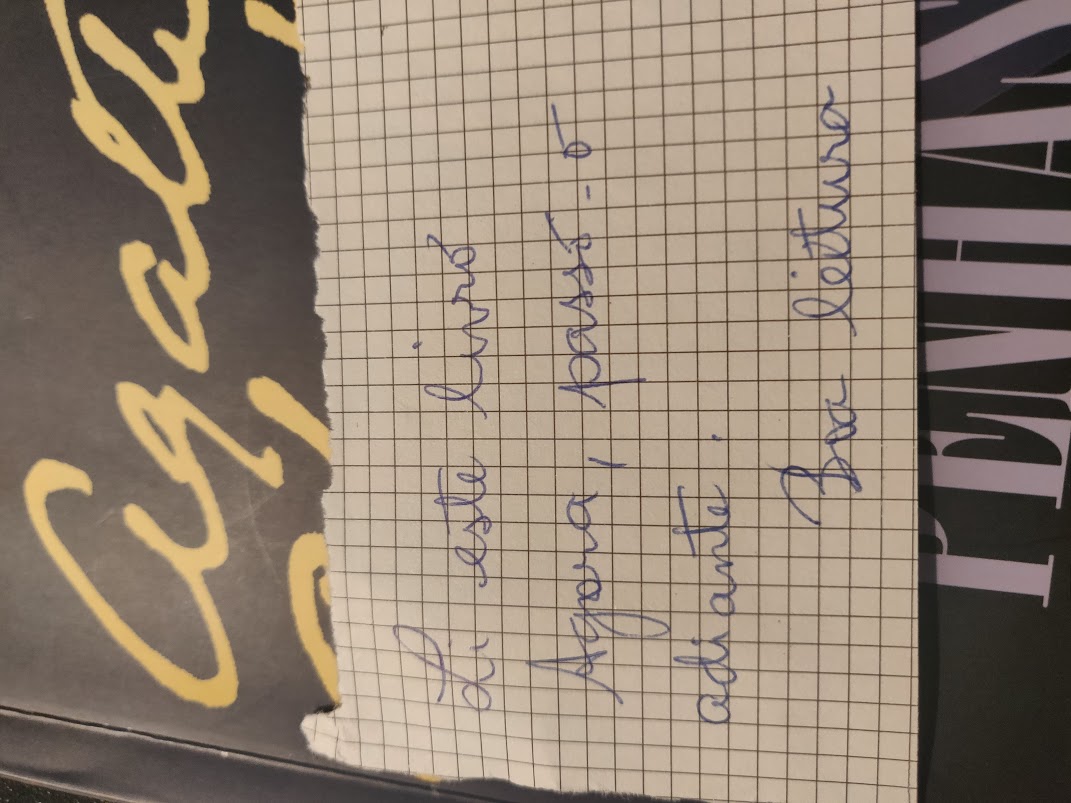 Agath
Li este livro
Agora, passo-o
adiante.
Boa leitura
PENHAS